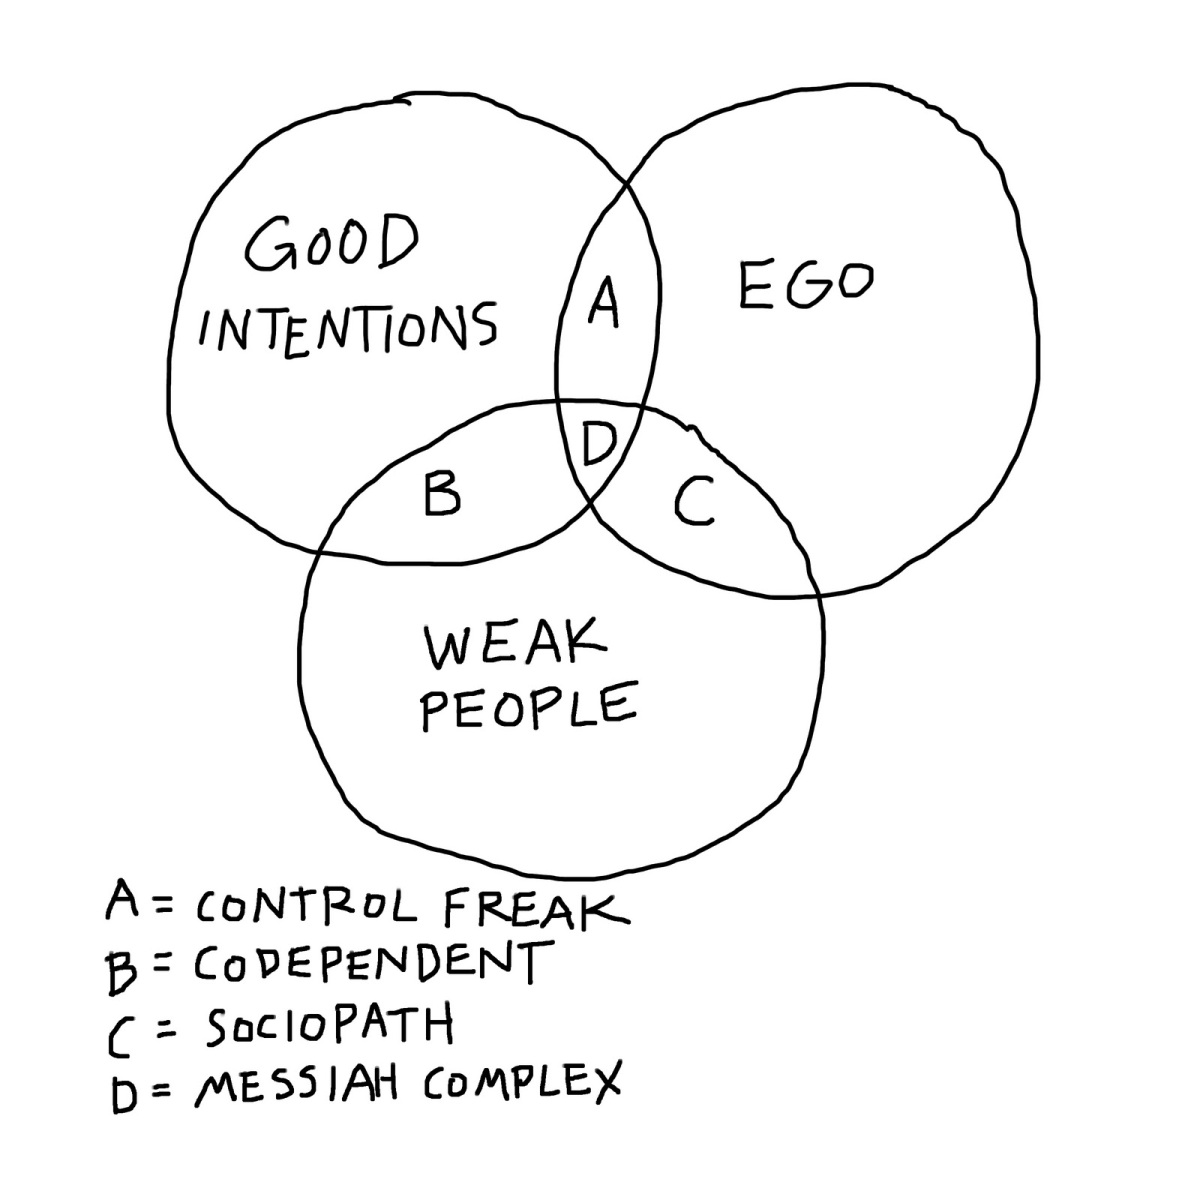 GOOD
INTENTIONS
EGO
A
D
B
C
WEAK
PEOPLE
A = CONTROL FREAK
B = CODEPENDENT
C = SOCIOPATH
D = MESSIAH COMPLEX